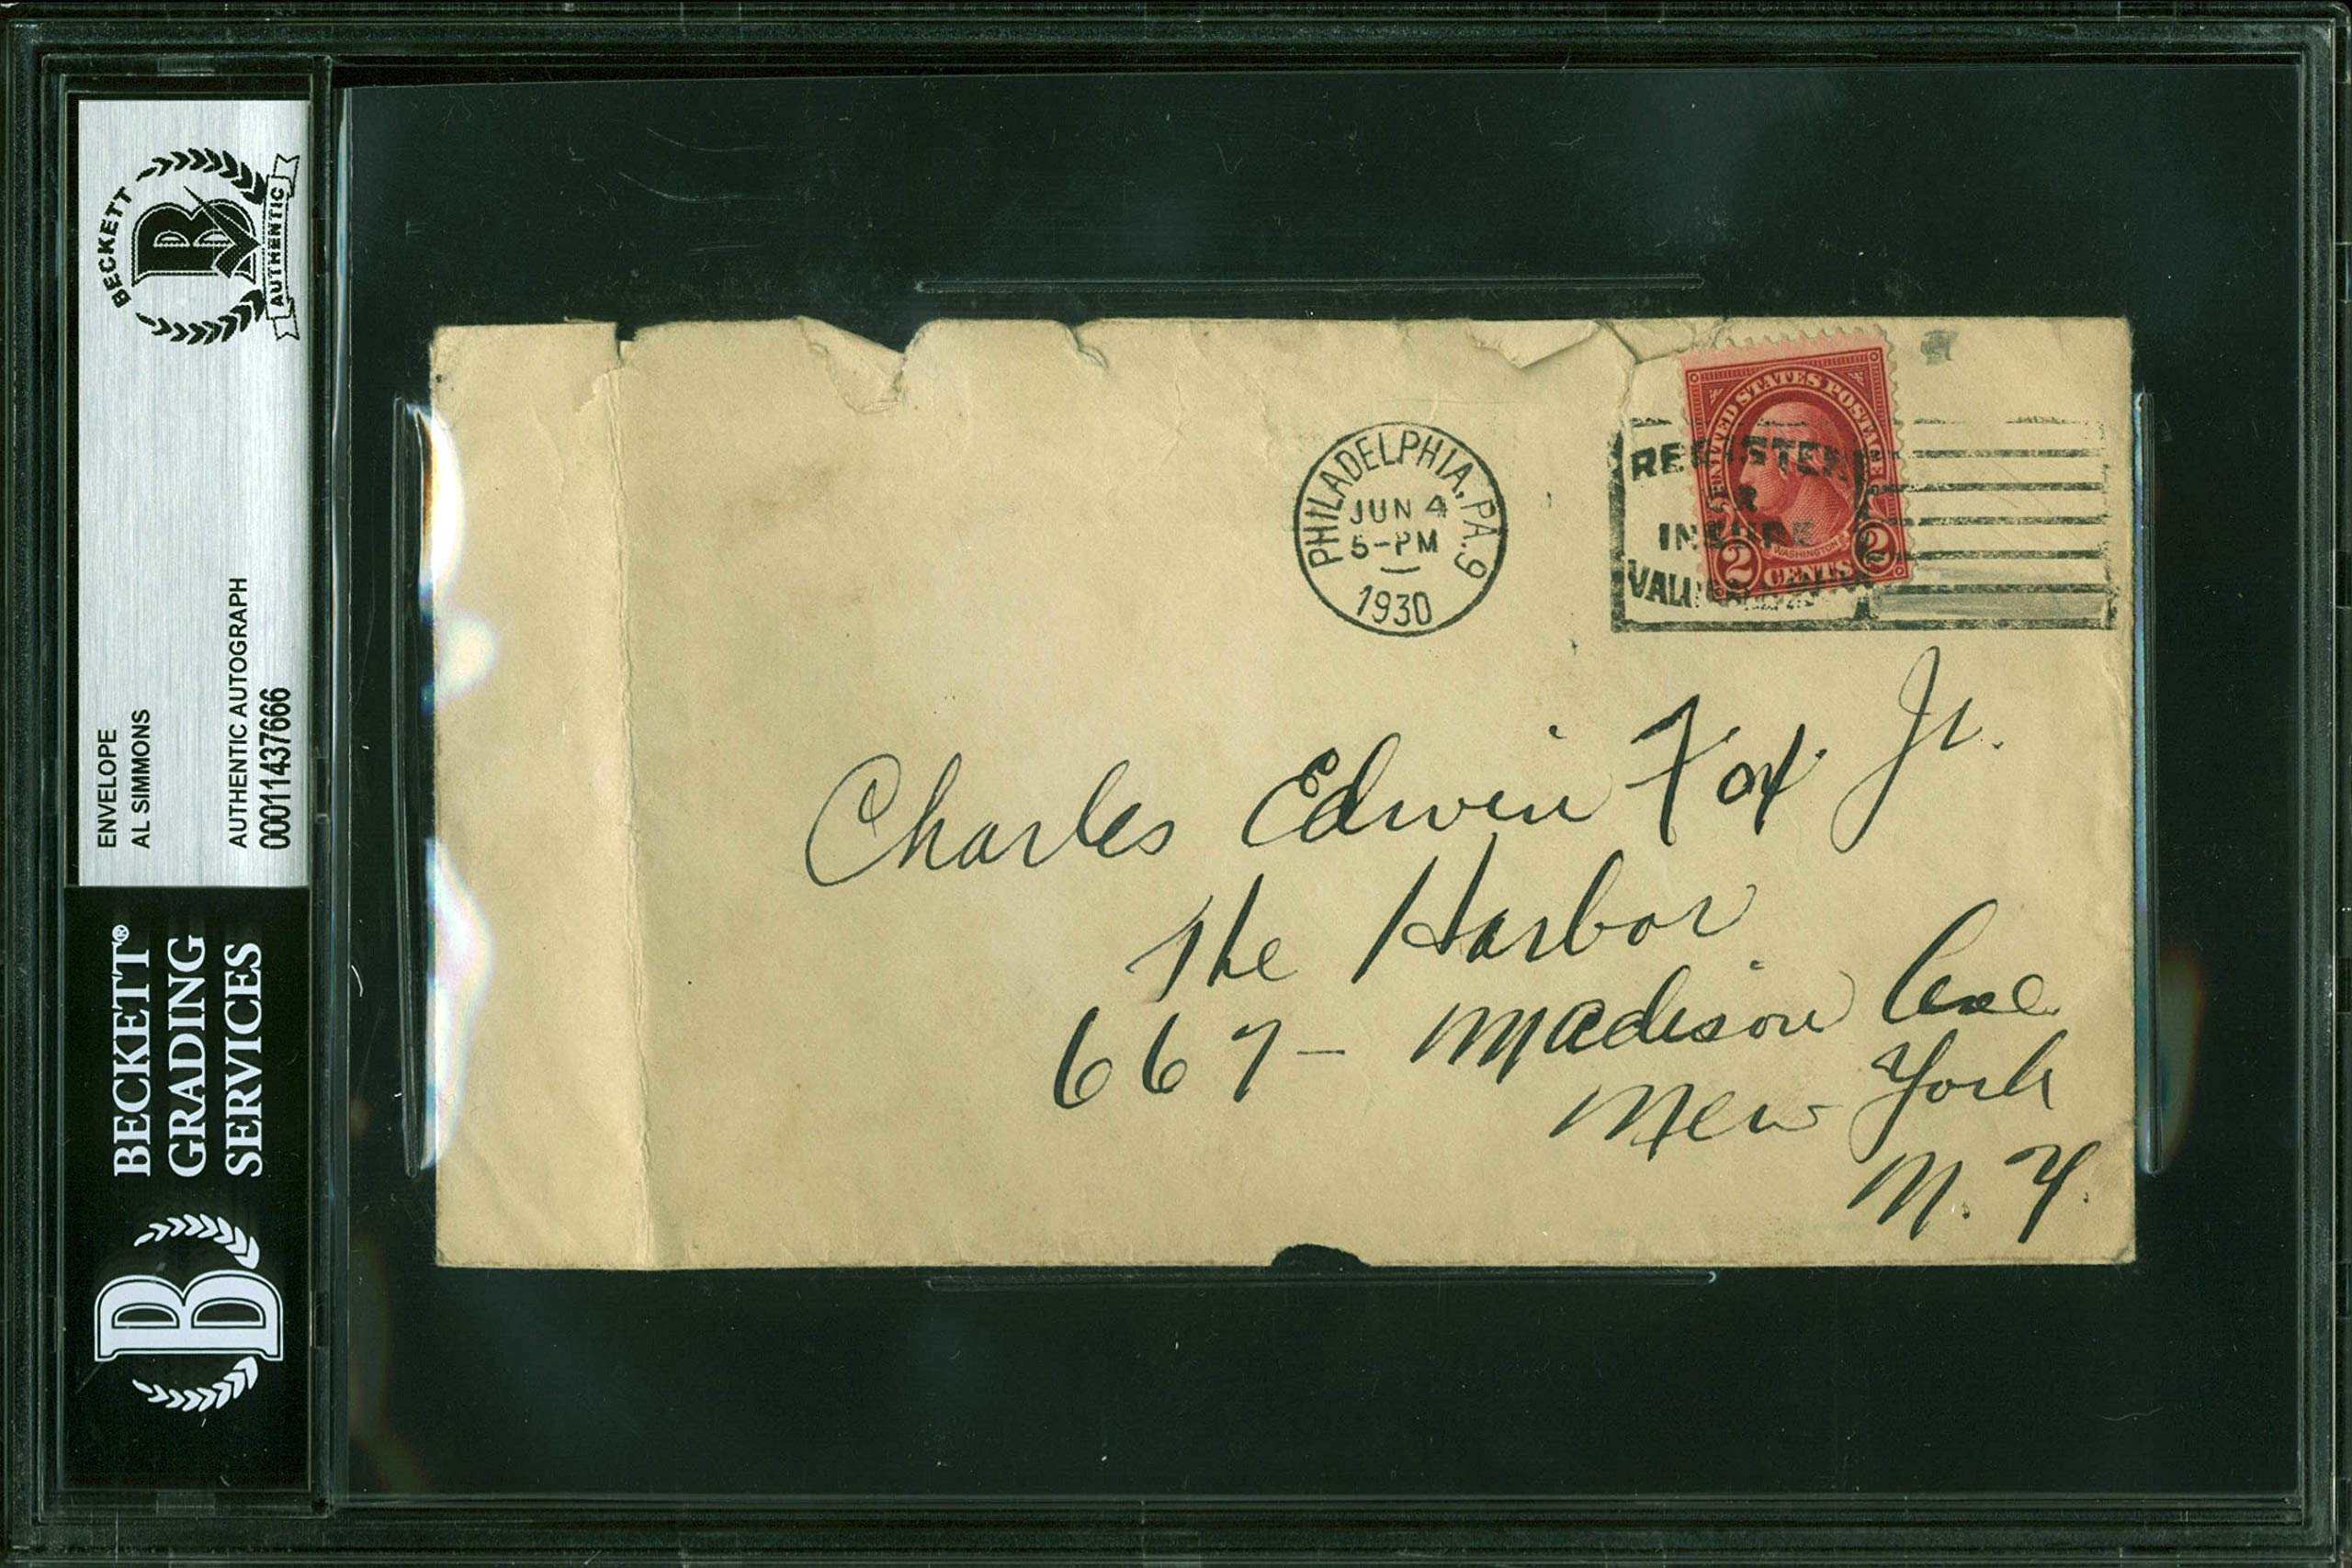 BECKETT
AUTHENTIC
ENVELOPE
AL SIMMONS
AUTHENTIC AUTOGRAPH
00011437666
BECKETT®
GRADING
SERVICES
B
PHILADELPHIA, PA. 9
JUN 4
5-PM
1930
REGISTER
OR
INSURE
UNITED STATES POSTAGE
WASHINGTON
2 CENTS 2
Charles Edwin Fox Jr.
The Harbor
667- Madison Ave
New York
N. Y.